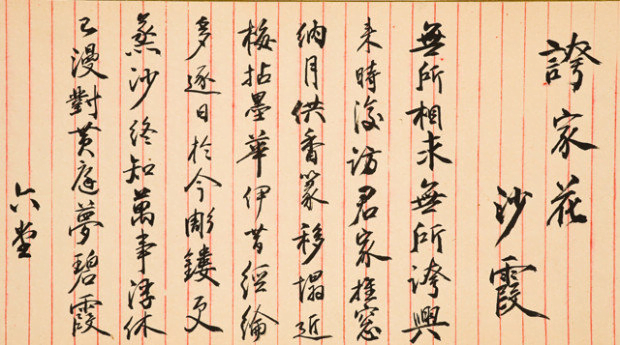 誇家花
沙霞
無所相求無所誇興
來時復訪君家推窓
納月供香篆移榻近
梅拈墨華伊昔經綸
多逐日於今彫鏤更
蒸沙終知萬事浮休
已漫對黃庭夢碧霞
六堂